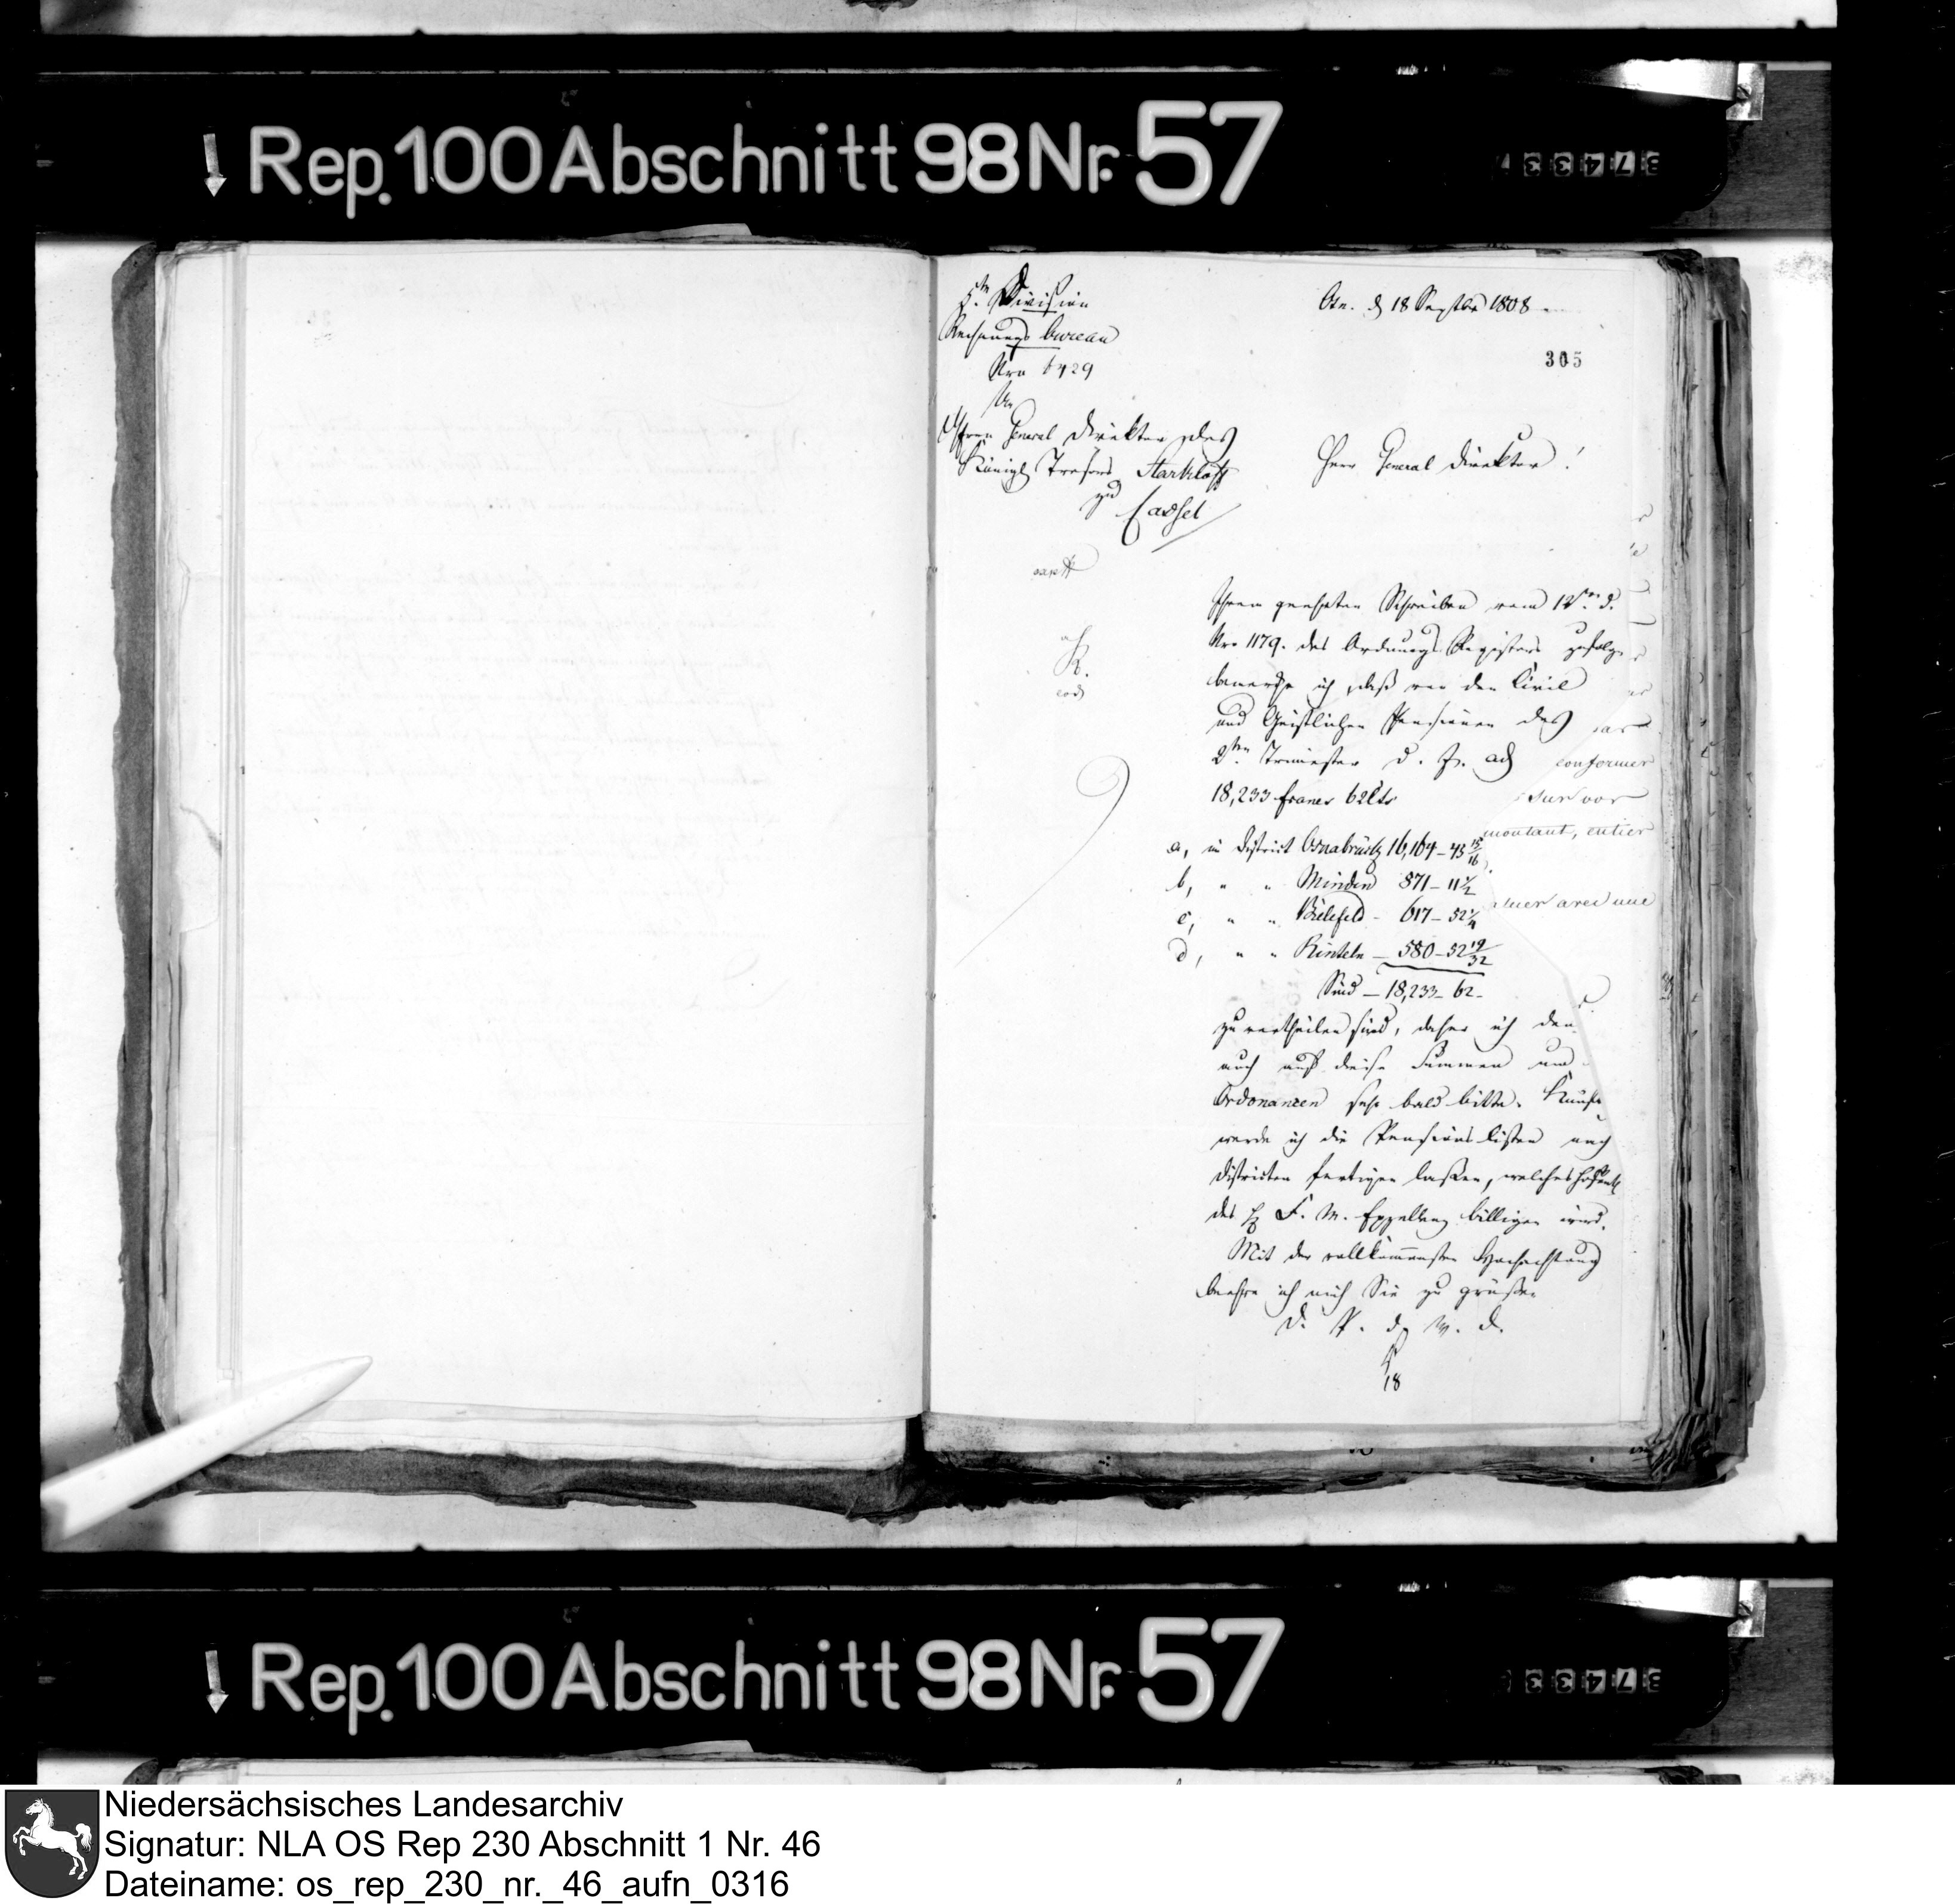 Rep. 100 Abschnitt 98 Nr. 57
5te Division
Rechnungs bureau
Nro 6429
An
Herrn General Direktor des
Königl. Tresors Starkloff
zu Cassel
Osn. d 18 Septbr 1808
305
Herr General Direktor!
Ihrem geehrten Schreiben vom 12ten d.
Nro 1179. des Ordnungs Registers zufolge
bemerke ich, daß von den Civil
und Geistlichen Pensionen des
2ten Trimester d. J. ad
18,233 francs 62 Cts
a, im District Osnabrück 16,164 – 45 15/16
b, " " Minden 871 – 11 1/2
c, " " Bielefeld - 617 – 52 1/4
d, " " Rinteln – 580 – 52 19/32
Sind – 18,233 – 62 -
zu vertheilen sind, daher ich den
auch auf diese Summen um
Ordonanzen sehr bald bitte.
werde ich die Pensions listen nach
Districten fertigen laßen, welches
des F. M. billigen wird.
Mit der vollkommensten Hochachtung
beehre ich mich Sie zu grüßen
D. P. d. W. D.
18
conformer
sur vos
montant, entier
avec une
Rep. 100 Abschnitt 98 Nr. 57
Niedersächsisches Landesarchiv
Signatur: NLA OS Rep 230 Abschnitt 1 Nr. 46
Dateiname: os_rep_230_nr._46_aufn_0316